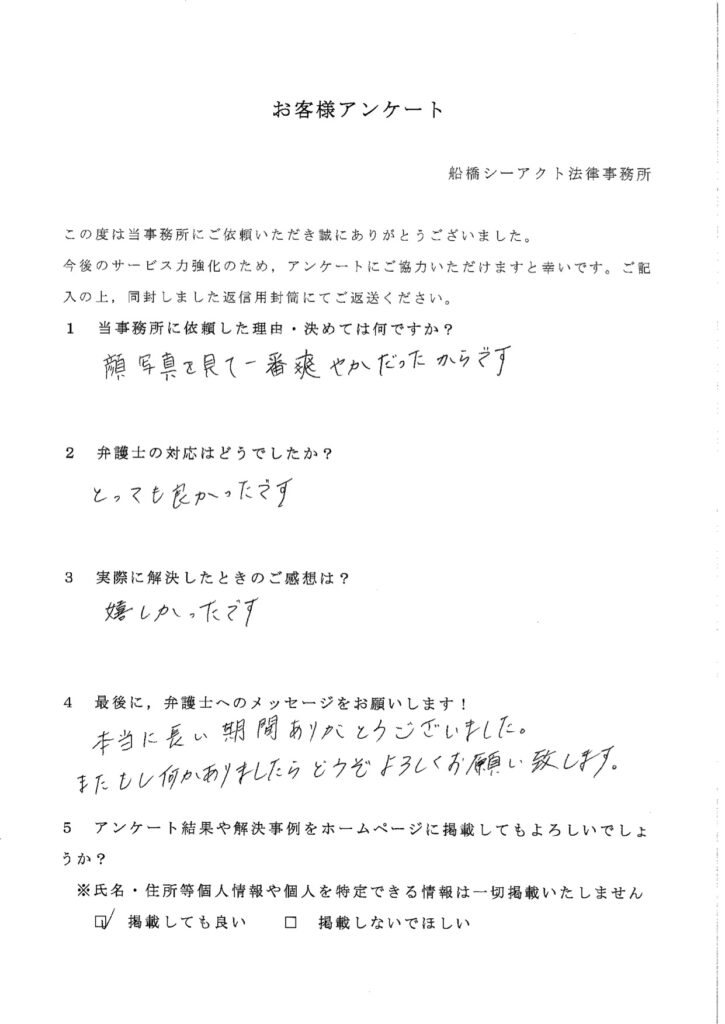 お客様アンケート
船橋シーアクト法律事務所
この度は当事務所にご依頼いただき誠にありがとうございました。
今後のサービス力強化のため，アンケートにご協力いただけますと幸いです。ご記
入の上，同封しました返信用封筒にてご返送ください。
1　当事務所に依頼した理由・決めては何ですか？
顔写真を見て一番爽やかだったからです
2　弁護士の対応はどうでしたか？
とっても良かったです
3　実際に解決したときのご感想は？
嬉しかったです
4　最後に，弁護士へのメッセージをお願いします！
本当に長い期間ありがとうございました。
またもし何かありましたらどうぞよろしくお願い致します。
5　アンケート結果や解決事例をホームページに掲載してもよろしいでしょ
うか？
※氏名・住所等個人情報や個人を特定できる情報は一切掲載いたしません
☑　掲載しても良い　　□　掲載しないでほしい